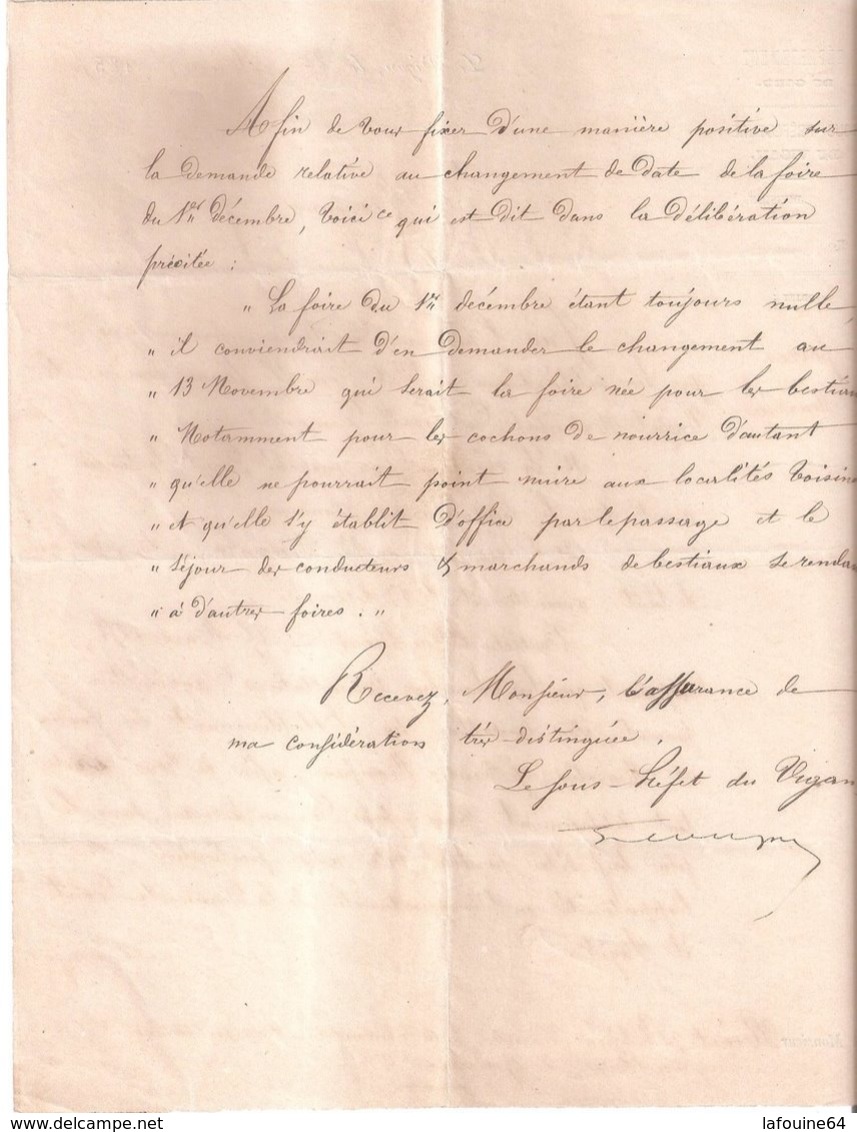 Afin de vous fixer d'une manière positive sur
la demande relative au changement de date de la foire
du 1er décembre, voici ce qui est dit dans la délibération
précitée :
" La foire du 1er décembre étant toujours nulle,
" il conviendrait d'en demander le changement au
" 13 Novembre qui serait la foire née pour les bestiau
" Notamment pour les cochons de nourrice d'autant
" qu'elle ne pourrait point nuire aux localités voisine
" et qu'elle s'y établit d'office par le passage et le
" séjour des conducteurs & marchands de bestiaux se rendan
" à d'autres foires. "
Recevez, Monsieur, l'assurance de
ma considération très distinguée.
Le Sous-Préfet du Vigan
Monsieur
delcampe.net
lafouine64